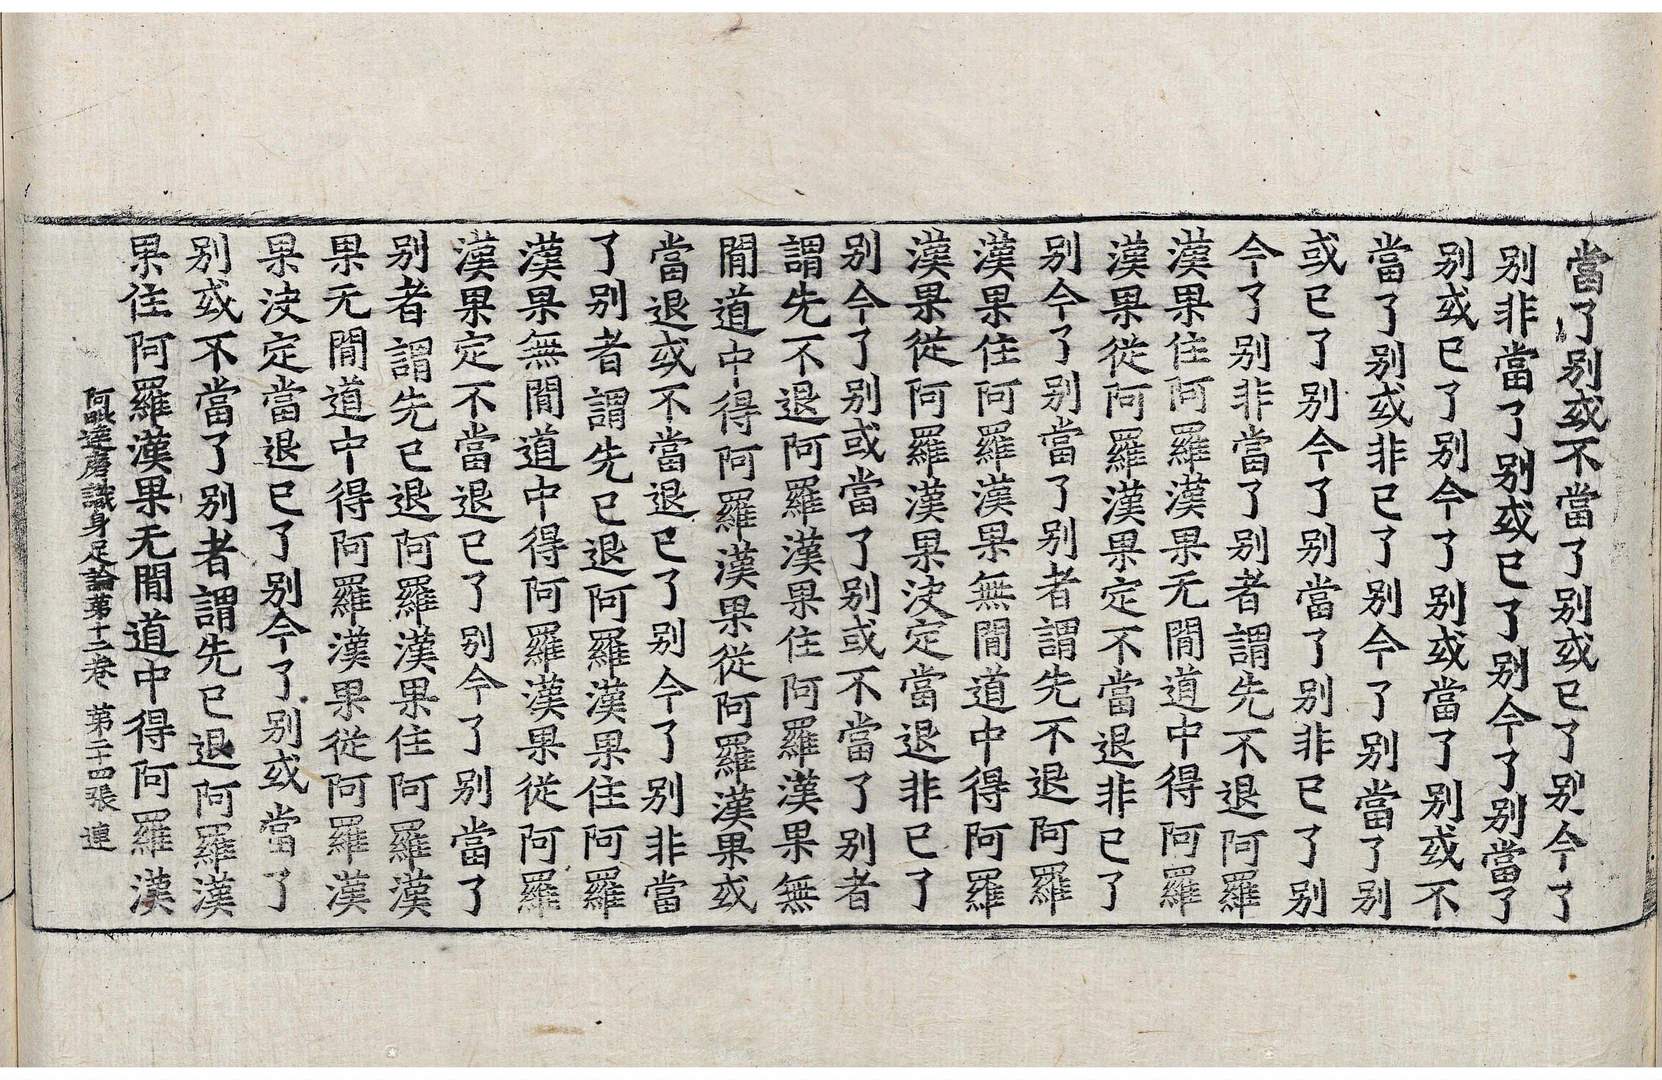 當了别或不當了别或已了别今了
别非當了别或已了别今了别當了
别或已了别今了别或當了别或不
當了别或非已了别今了别當了别
或已了别今了别當了别非已了别
今了别非當了别者謂先不退阿羅
漢果住阿羅漢果无間道中得阿羅
漢果從阿羅漢果定不當退非已了
别今了别當了别者謂先不退阿羅
漢果住阿羅漢果無間道中得阿羅
漢果從阿羅漢果決定當退非已了
别今了别或當了别或不當了别者
謂先不退阿羅漢果住阿羅漢果無
間道中得阿羅漢果從阿羅漢果或
當退或不當退已了别今了别非當
了别者謂先已退阿羅漢果住阿羅
漢果無間道中得阿羅漢果從阿羅
漢果定不當退已了别今了别當了
别者謂先已退阿羅漢果住阿羅漢
果无間道中得阿羅漢果從阿羅漢
果決定當退已了别今了别或當了
别或不當了别者謂先已退阿羅漢
果住阿羅漢果无間道中得阿羅漢
阿毗達磨識身足論第十二卷 第二十四張 連